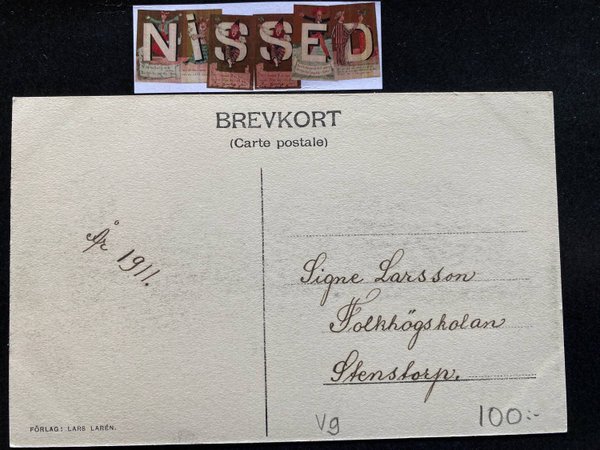 NISSED
BREVKORT
(Carte postale)
År 1911.
Signe Larsson
Folkhögskolan
Stenstorp.
FÖRLAG: LARS LARÉN.
Vg
100:-